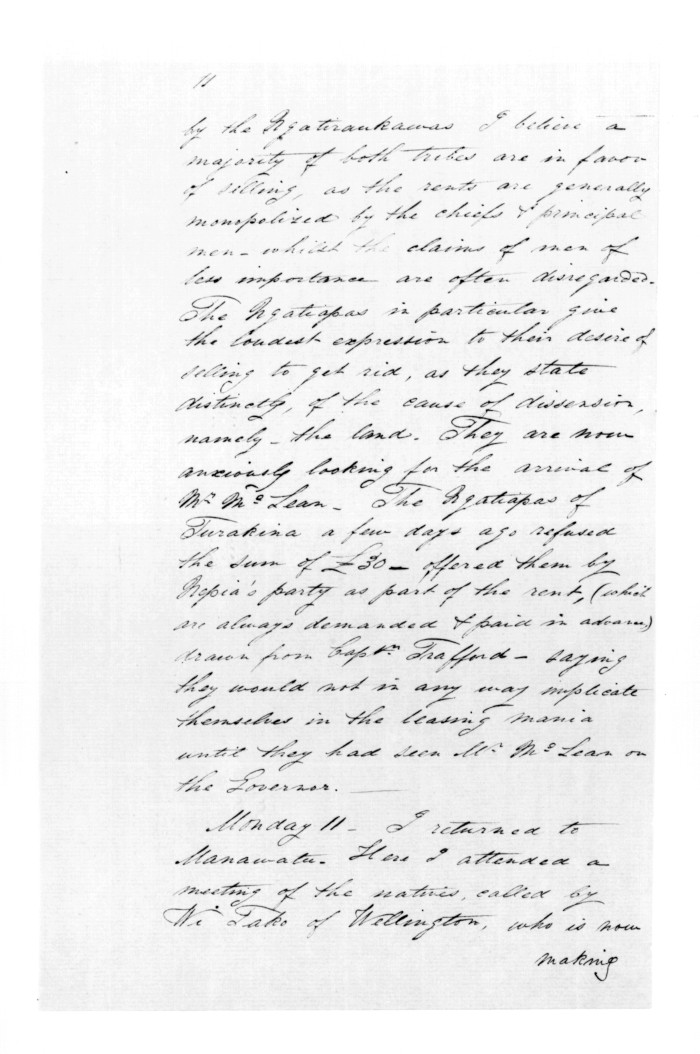 11
by the Ngatiraukawas I believe a
majority of both tribes are in favor
of selling, as the rents are generally
monopolized by the chiefs & principal
men - whilst the claims of men of
less importance are often disregarded.
The Ngatiapas in particular give
the loudest expression to their desire of
selling to get rid, as they state
distinctly, of the cause of dissension,
namely - the land. They are now
anxiously looking for the arrival of
Mr. McLean - The Ngatiapas of
Turakina a few days ago refused
the sum of £30 - offered them by
party as part of the rent, (which
are always demanded & paid in advance)
drawn from Captn. Trafford - saying
they would not in any way implicate
themselves in the leasing mania
until they had seen Mr. McLean or
the Governor. —
Monday 11 - I returned to
Manawatu. Here I attended a
meeting of the natives, called by
Wi Tako of Wellington, who is now
making